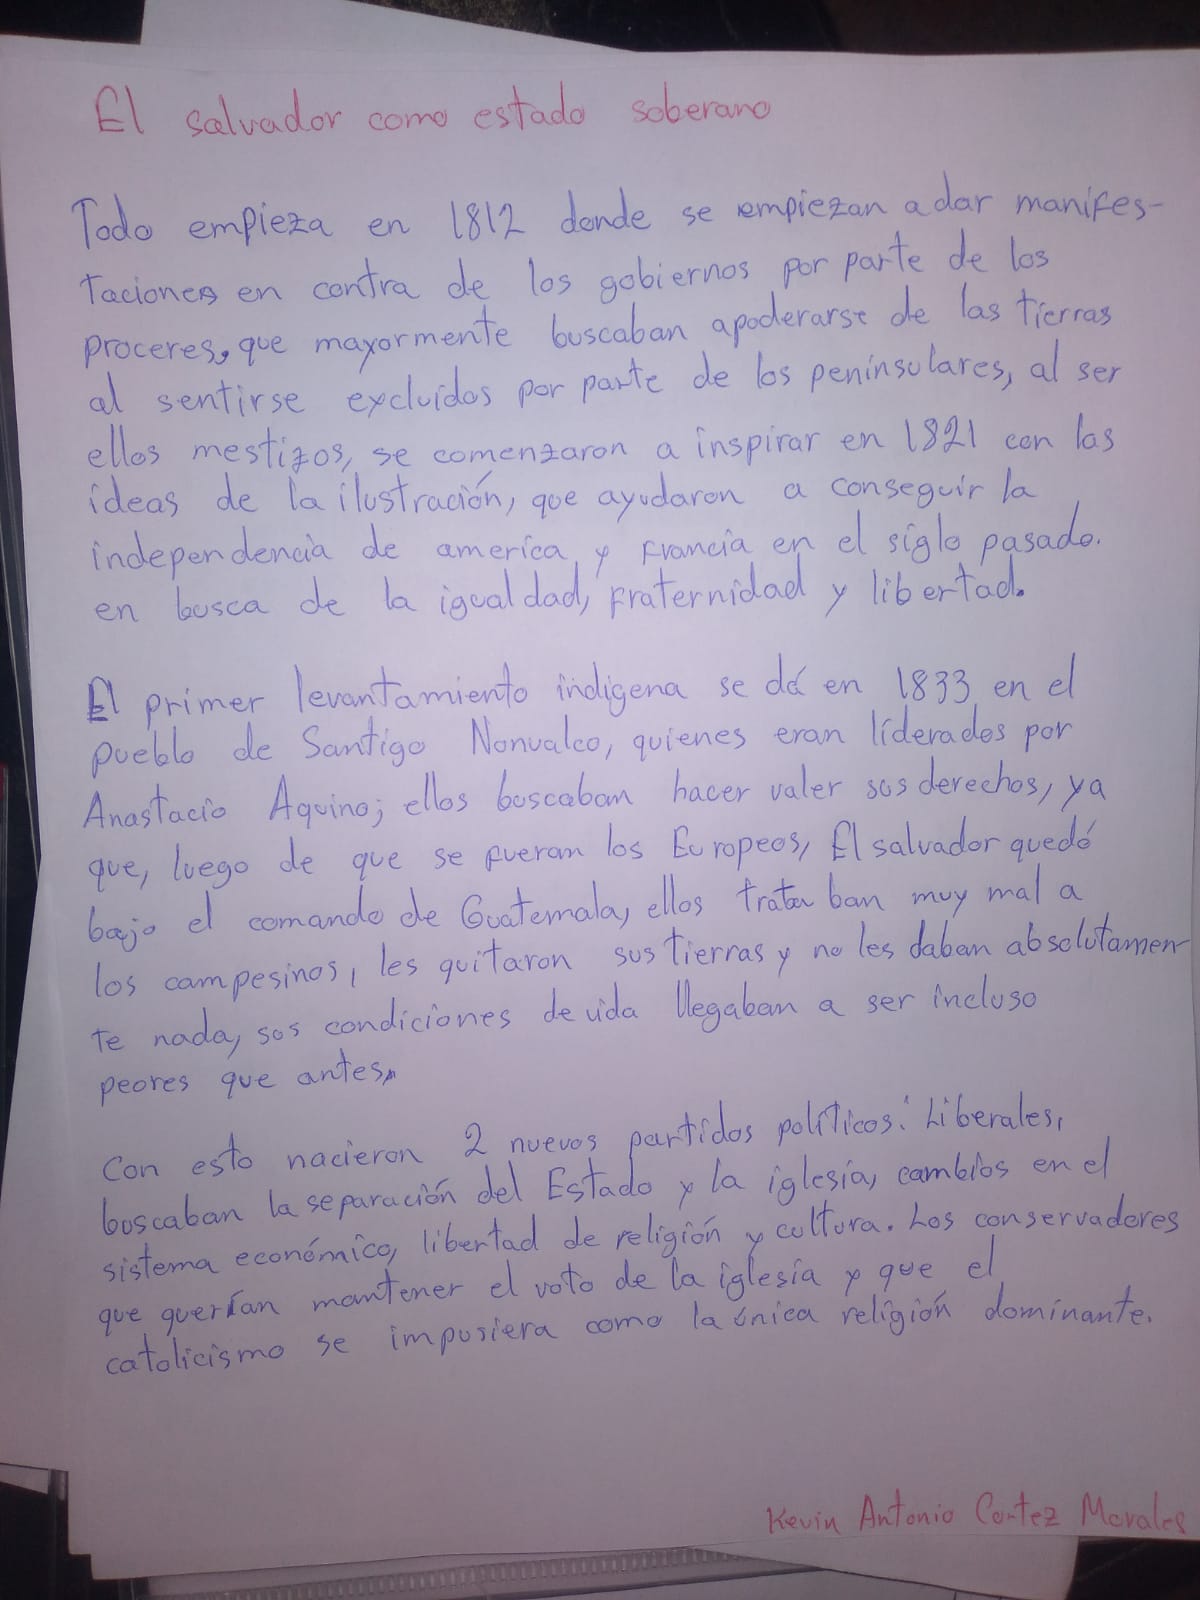 El salvador como estado soberano
Todo empieza en 1812 donde se empiezan a dar manifes-
taciones en contra de los gobiernos por parte de los
proceres, que mayormente buscaban apoderarse de las tierras
al sentirse excluidos por parte de los peninsulares, al ser
ellos mestizos, se comenzaron a inspirar en 1821 con las
ideas de la ilustración, que ayudaron a conseguir la
independencia de america y francia en el siglo pasado.
en busca de la igualdad, fraternidad y libertad.
El primer levantamiento indigena se dá en 1833 en el
pueblo de Santigo Nonualco, quienes eran liderados por
Anastacio Aquino; ellos buscaban hacer valer sus derechos, ya
que, luego de que se fueran los Europeos, El salvador quedó
bajo el comando de Guatemala, ellos trataban muy mal a
los campesinos, les quitaron sus tierras y no les daban absolutamen
te nada, sus condiciones de vida llegaban a ser incluso
peores que antes.
Con esto nacieron 2 nuevos partidos políticos: Liberales,
buscaban la separación del Estado y la iglesia, cambios en el
sistema económico, libertad de religión y cultura. Los conservadores
que querían mantener el voto de la iglesia y que el
catolicismo se impusiera como la única religión dominante.
Kevin Antonio Cortez Morales